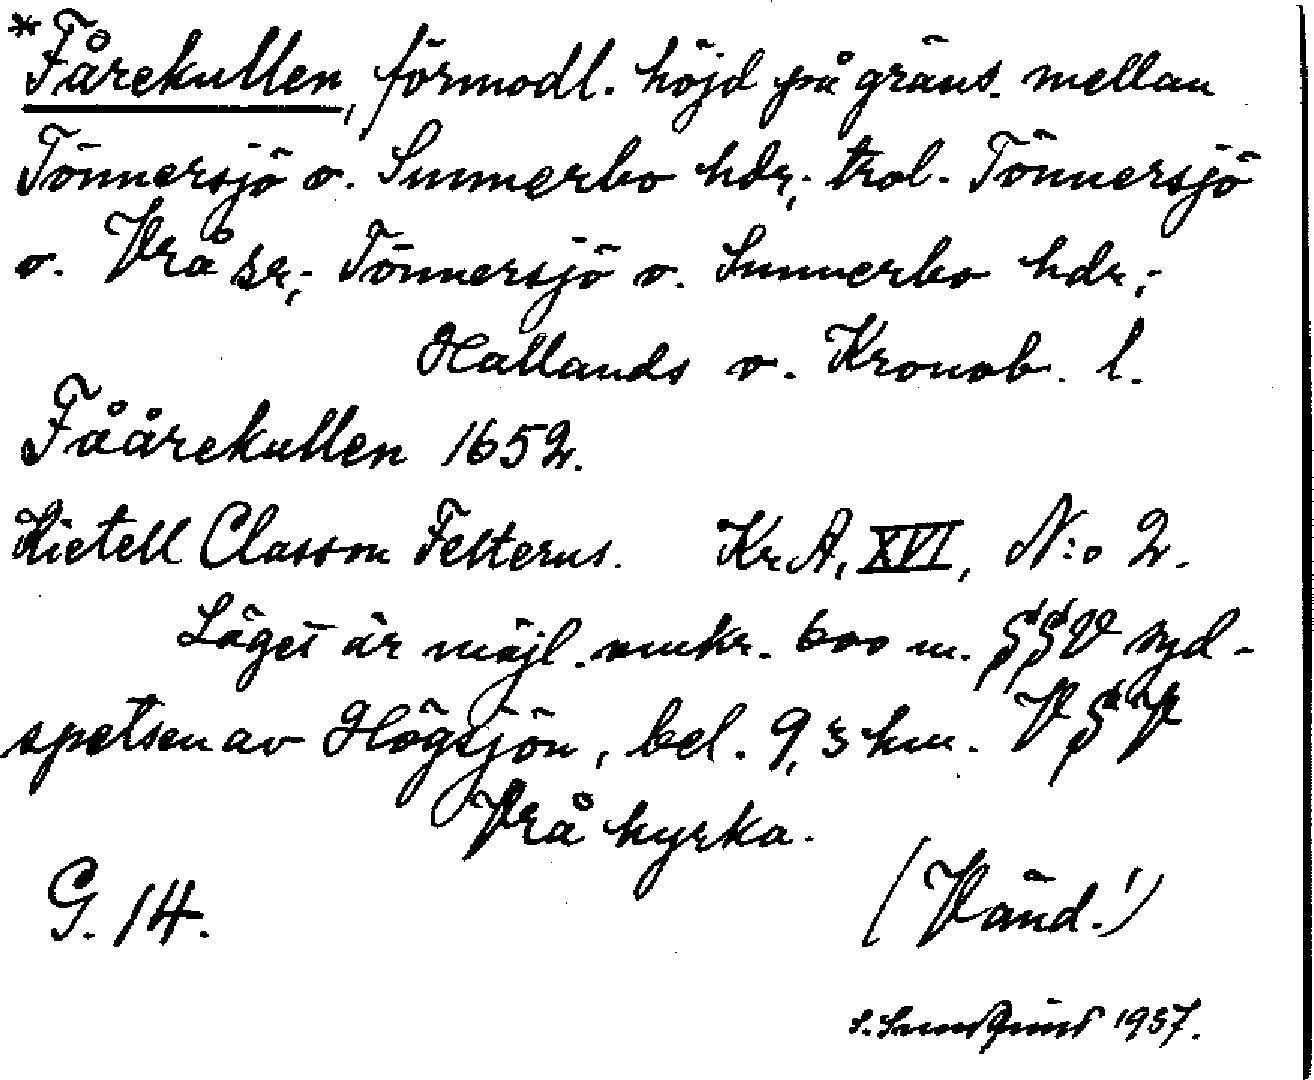 *Fårekullen, förmodl. höjd på gräns. mellan
Tönnersjö o. Sunnerbo hdr; trol. Tönnersjö
o. Vrå sr; Tönnersjö o. Sunnerbo hdr;
Hallands o. Kronob. l.
Fåårekullen 1652.
Kietell Classon Felterus. Kr.A, XVI, N:o 2.
Läget är möjl. omkr. 600 m. SSV syd-
spetsen av Högsjön, bel. 9,3 km. VSV
Vrå kyrka.
G. 14. (Vänd!)
S. Sundquist 1937.